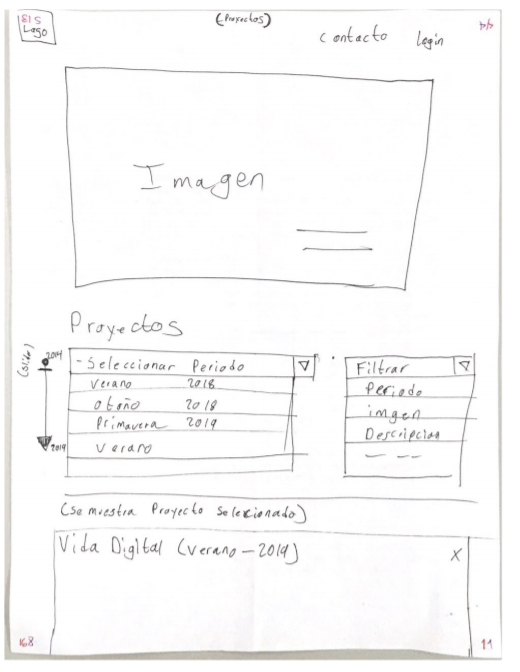 SIS
Logo
(Proyectos)
contacto
login
44
Imagen
Proyectos
(Slider)
2014
2019
-Seleccionar Periodo
Verano 2018
otoño 2018
Primavera 2019
Verano
Filtrar
Periodo
imgen
Descripcion
(se muestra Proyecto seleccionado)
Vida Digital (verano-2019)
X
168
11